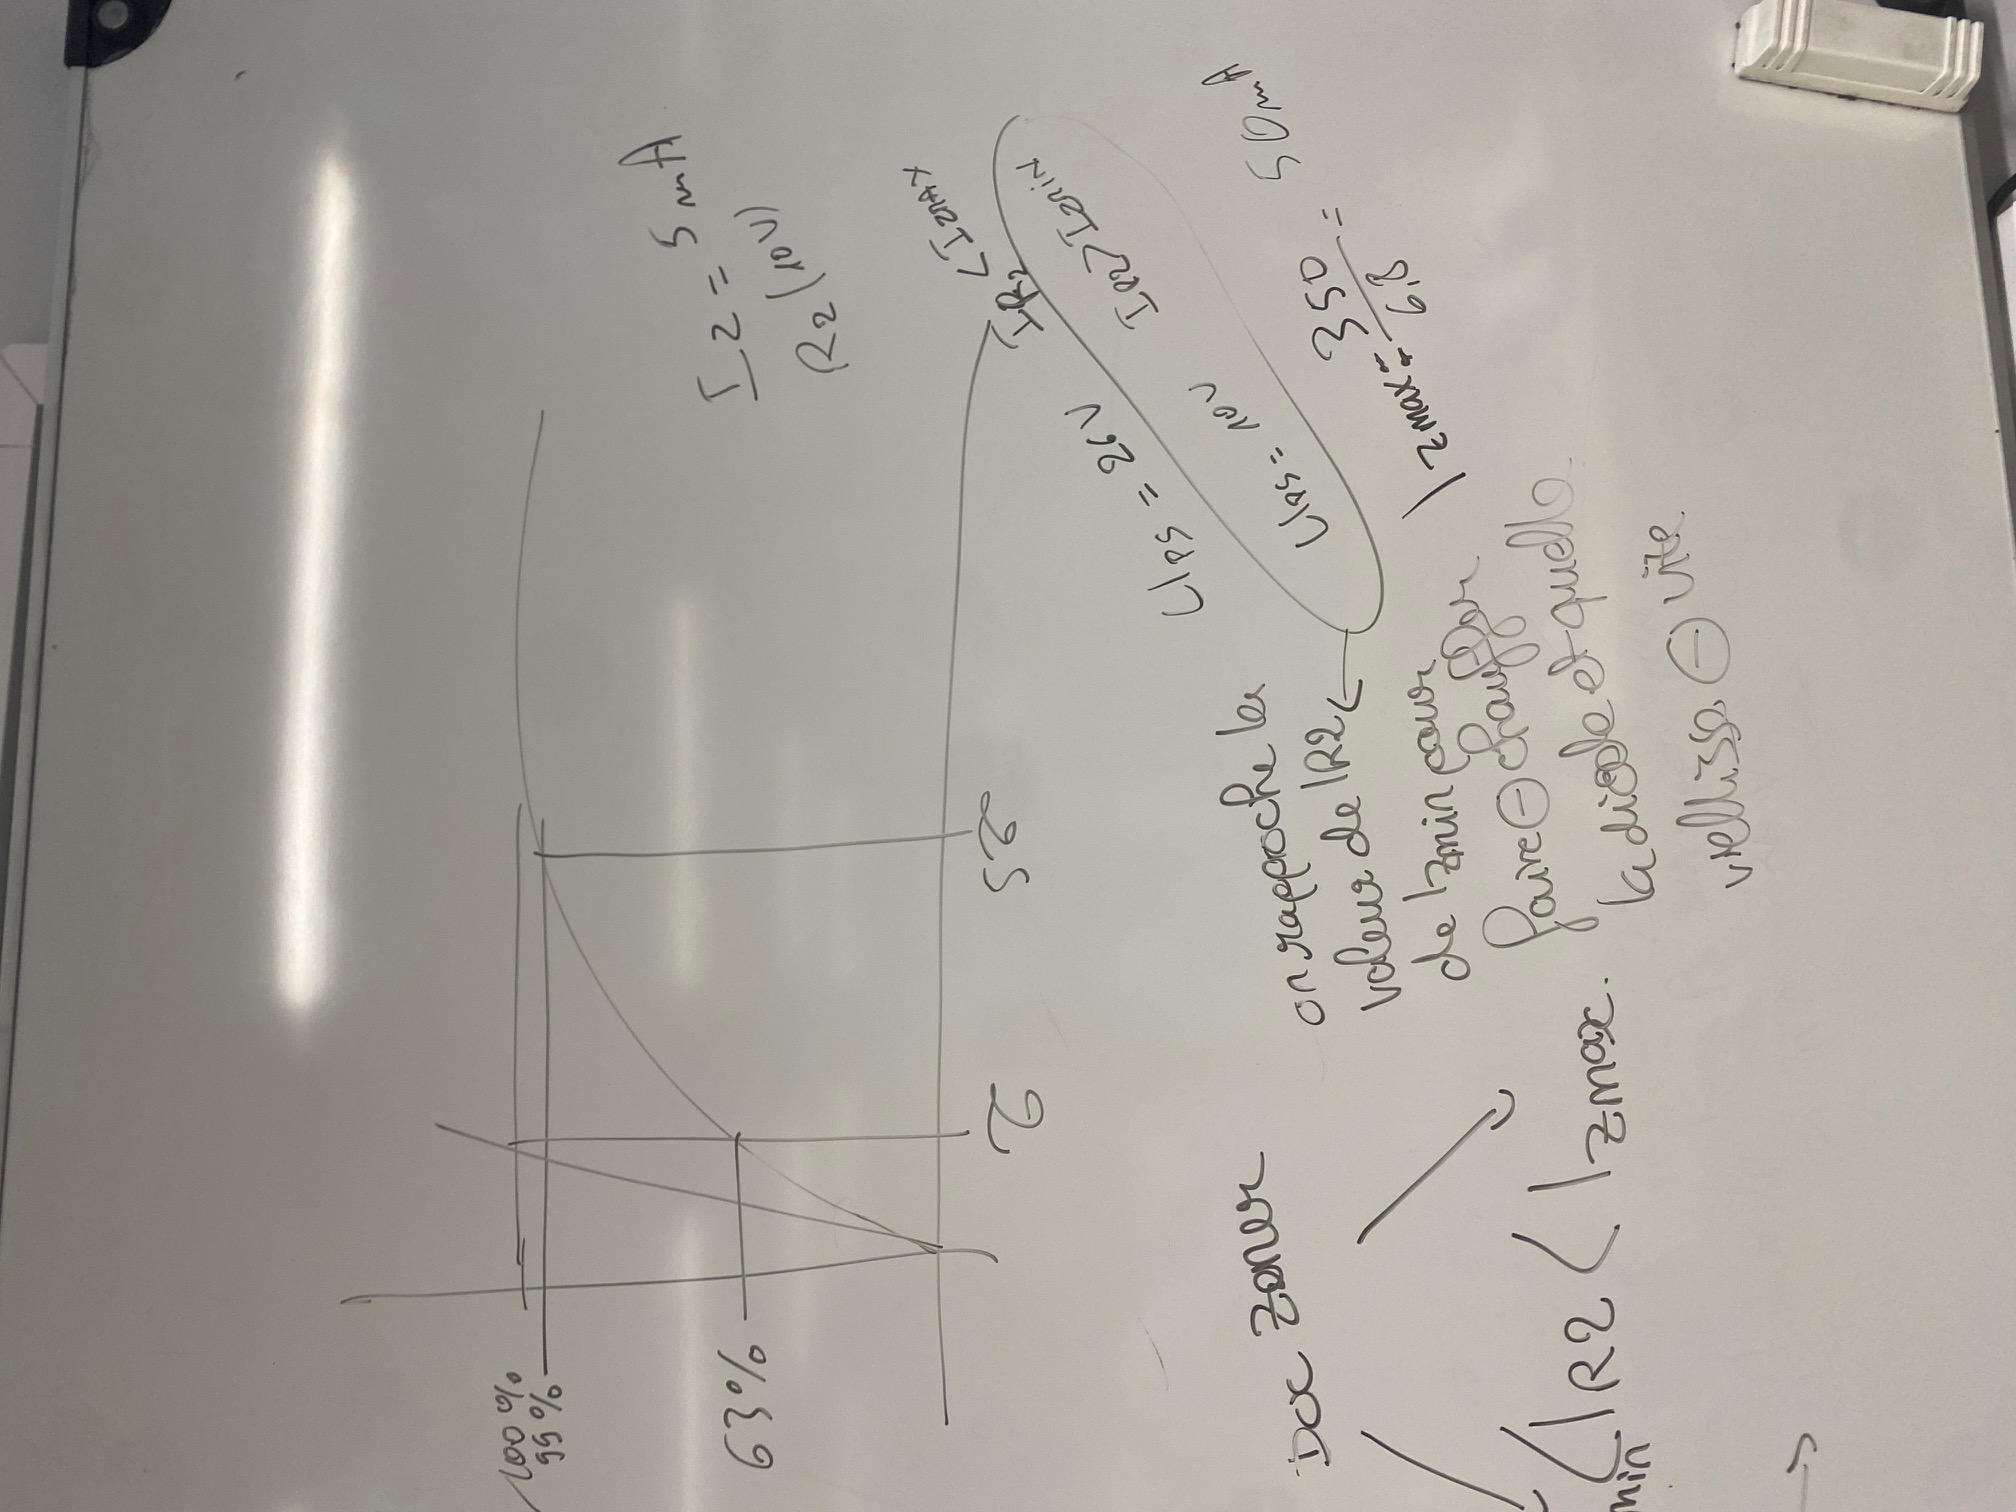 100 %
99 %
63%
τ
5τ
Iz = 5 mA
R2 (10V)
IR2 < IzMAX
UPS = 26V
IR2 > IzMiN
UPS = 10V
Izmax = 350 / 6,8 = 50mA
Doc Zener
min < IR2 < Izmax.
on rapproche la
valeur de IR2
de Izmin pour
faire ⊖ chauffer
la diode et quelle
viellisse ⊖ vite